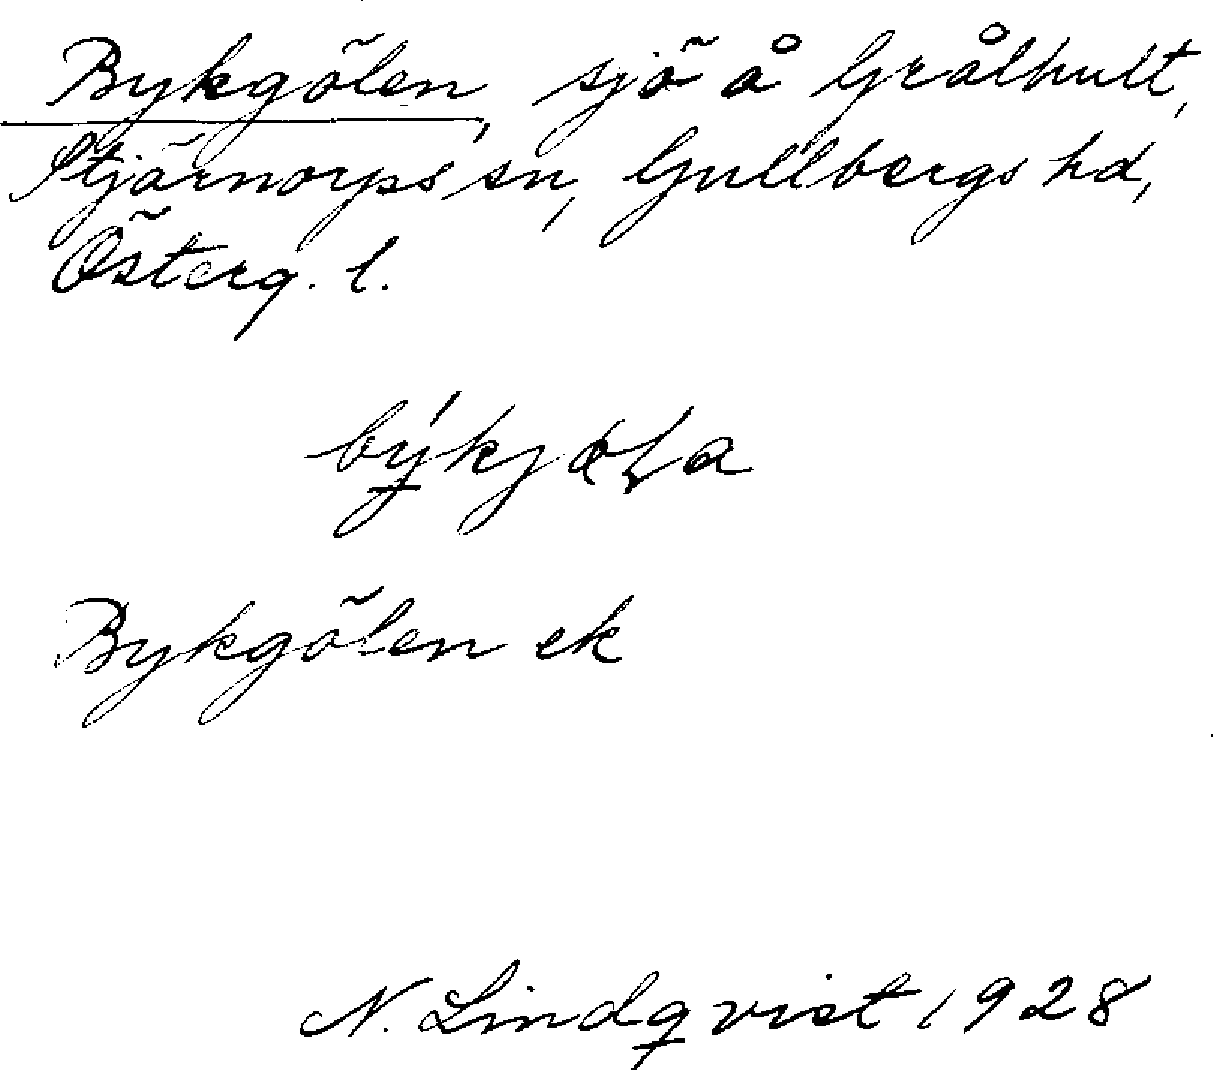 Bykgölen, sjö å Grålhult,
Stjärnorps sn, Gullbergs hd,
Österg. l.
Bykgölen ek
N. Lindqvist 1928